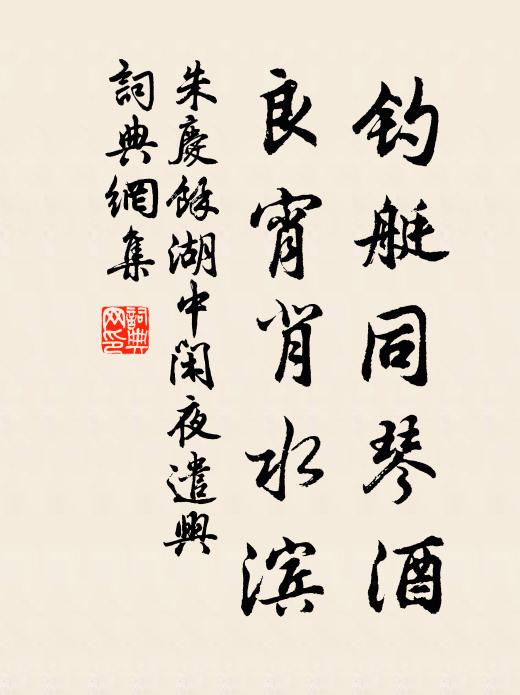 钓艇同琴酒
良宵背水滨
朱慶餘湖中閑夜遣興
詞典網集
詞典网印